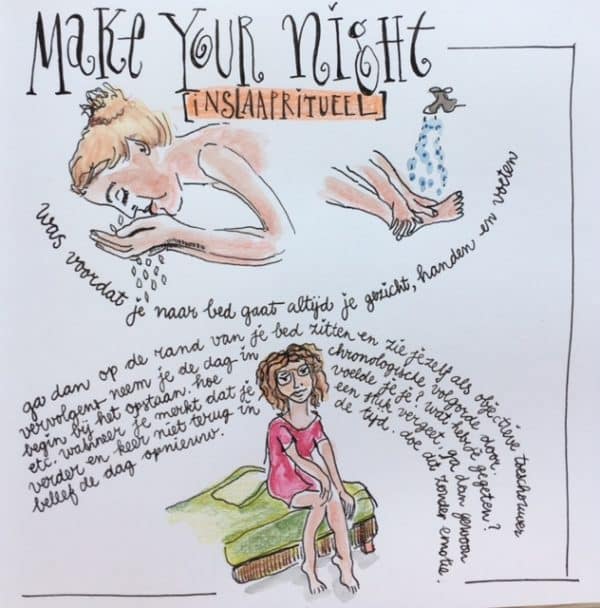 Make Your Night
[inslaapritueel]
was voordat je naar bed gaat altijd je gezicht, handen en voeten
ga dan op de rand van je bed zitten en zie jezelf als objectieve toeschouwer
vervolgens neem je de dag in chronologische volgorde door.
begin bij het opstaan. hoe voelde je je? wat heb je gegeten?
etc. wanneer je merkt dat je een stuk vergeet, ga dan gewoon
verder en keer niet terug in de tijd. doe dit zonder emotie.
beleef de dag opnieuw.